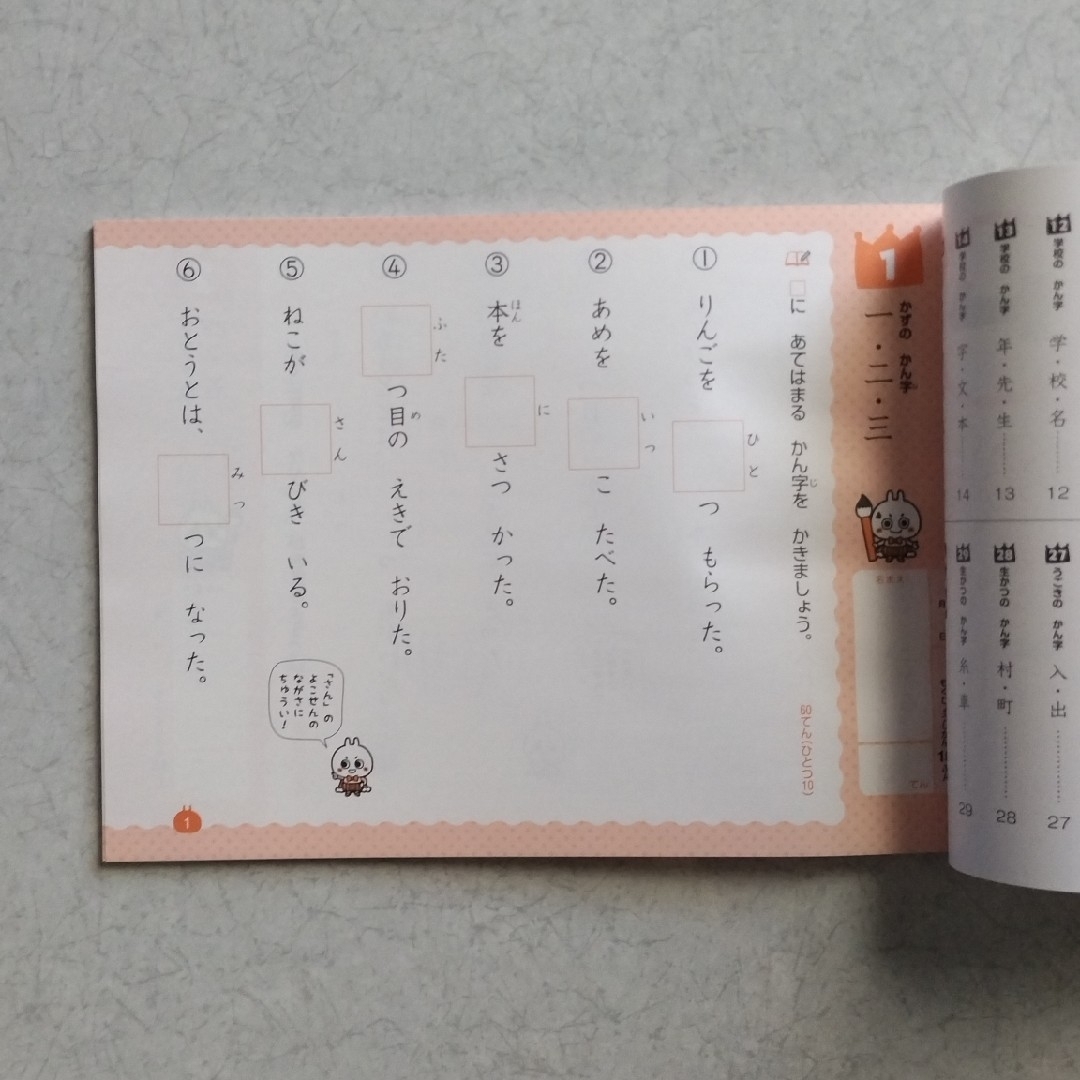 1
かずの かん字
一・二・三
名まえ
てん
□に あてはまる かん字を かきましょう。
じ
60てん(ひとつ10)
① りんごを □つ もらった。
ひと
② あめを □こ たべた。
いっ
③ 本を □さつ かった。
ほん
に
④ □つ目の えきで おりた。
ふた
め
⑤ ねこが □びき いる。
さん
⑥ おとうとは、□つに なった。
みっ
「さん」の
よこせんの
ながさに
ちゅうい!
1
12 学校の かん字 学・校・名 12
13 学校の かん字 年・先・生 13
14 学校の かん字 字・文・本 14
27 うごきの かん字 入・出 27
28 生かつの かん字 村・町 28
生かつの かん字 糸・車 29